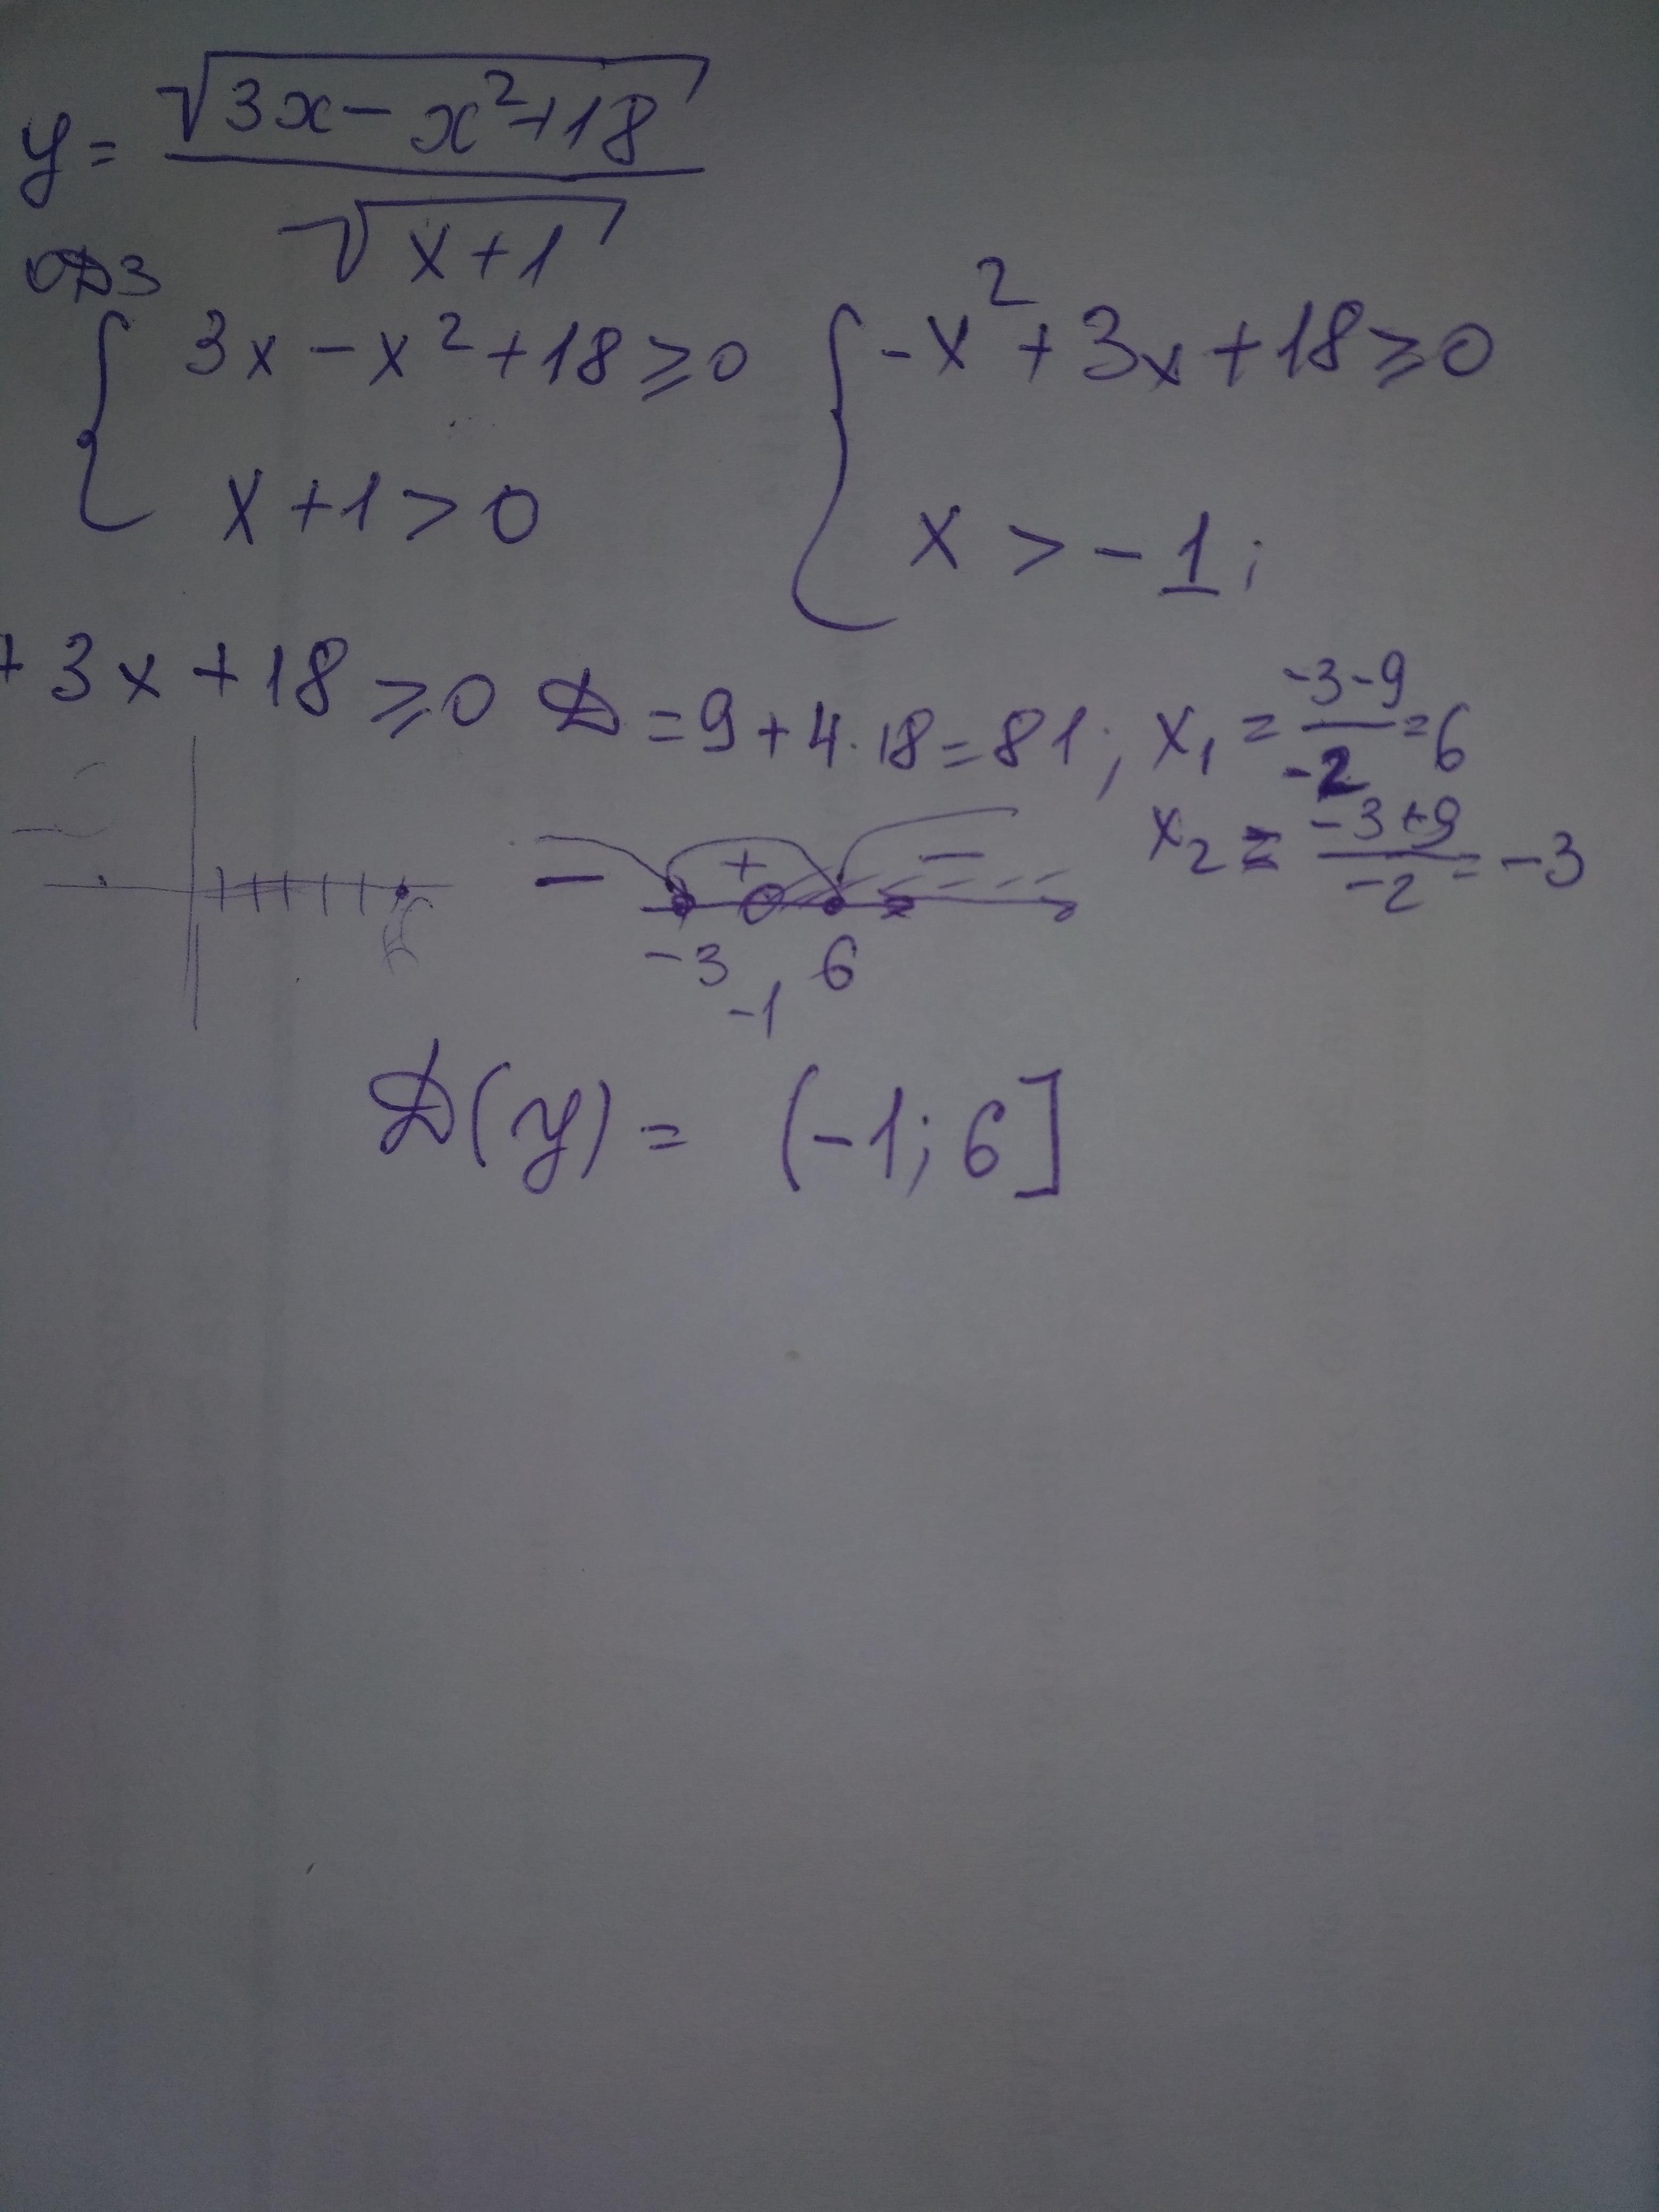 y = √(3x - x² + 18) / √(x + 1)
ОДЗ
{ 3x - x² + 18 ≥ 0 { -x² + 3x + 18 ≥ 0
x + 1 > 0 x > -1;
+ 3x + 18 ≥ 0 D = 9 + 4·18 = 81; x₁ = (-3-9)/(-2) = 6
x₂ = (-3+9)/(-2) = -3
- + -
-3 -1 6
D(y) = (-1; 6]